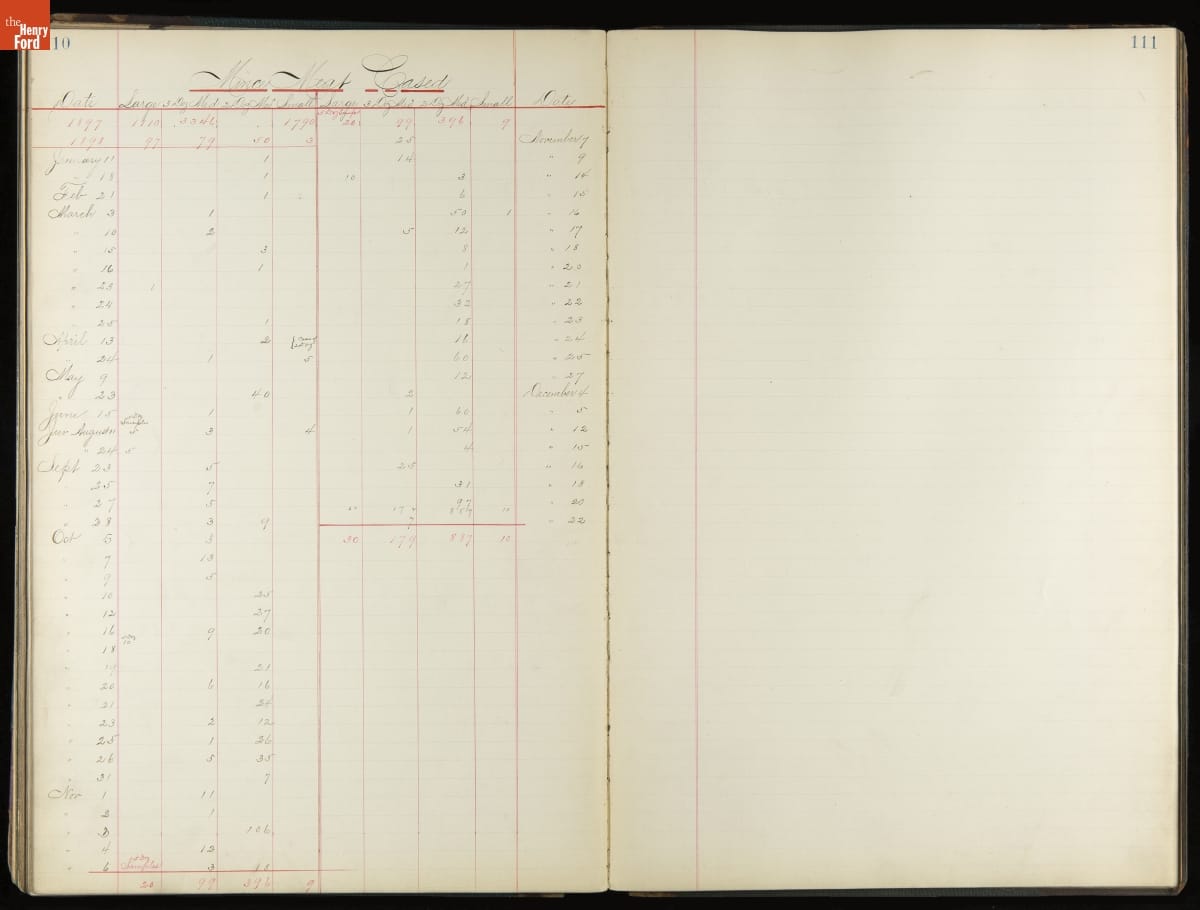 the
Henry
Ford
10
111
Mince Meat Cased
Date Large 3 Dz Med 2 Dz Med Small Large 3 Dz Med 2 Dz Med Small Date
1897 1910 3346 1790 20 99 396 9
1898 97 79 50 3 25 November 7
January 11 1 14 " 9
" 18 1 10 3 " 14
Feb 21 1 6 " 15
March 3 1 50 1 " 16
" 10 2 5 12 " 17
" 15 3 8 " 18
" 16 1 1 " 20
" 23 1 27 " 21
" 24 32 " 22
" 25 1 18 " 23
April 13 2 16 " 24
" 24 1 5 60 " 25
May 9 12 " 27
" 23 40 2 December 4
June 15 1 1 60 " 5
August 5 3 4 1 54 " 12
" 24 5 4 " 15
Sept 23 5 25 " 16
" 25 7 31 " 18
" 27 5 97 " 20
" 28 3 9 7 " 22
Oct 5 3 30 179 887 10
" 7 13
" 9 5
" 10 25
" 12 27
" 16 10 9 20
" 18
" 19 21
" 20 6 16
" 21 24
" 23 2 12
" 25 1 26
" 26 5 35
" 31 7
Nov 1 11
" 2 1
" 3 106
" 4 12
" 6 Samples 3 18
20 99 396 9